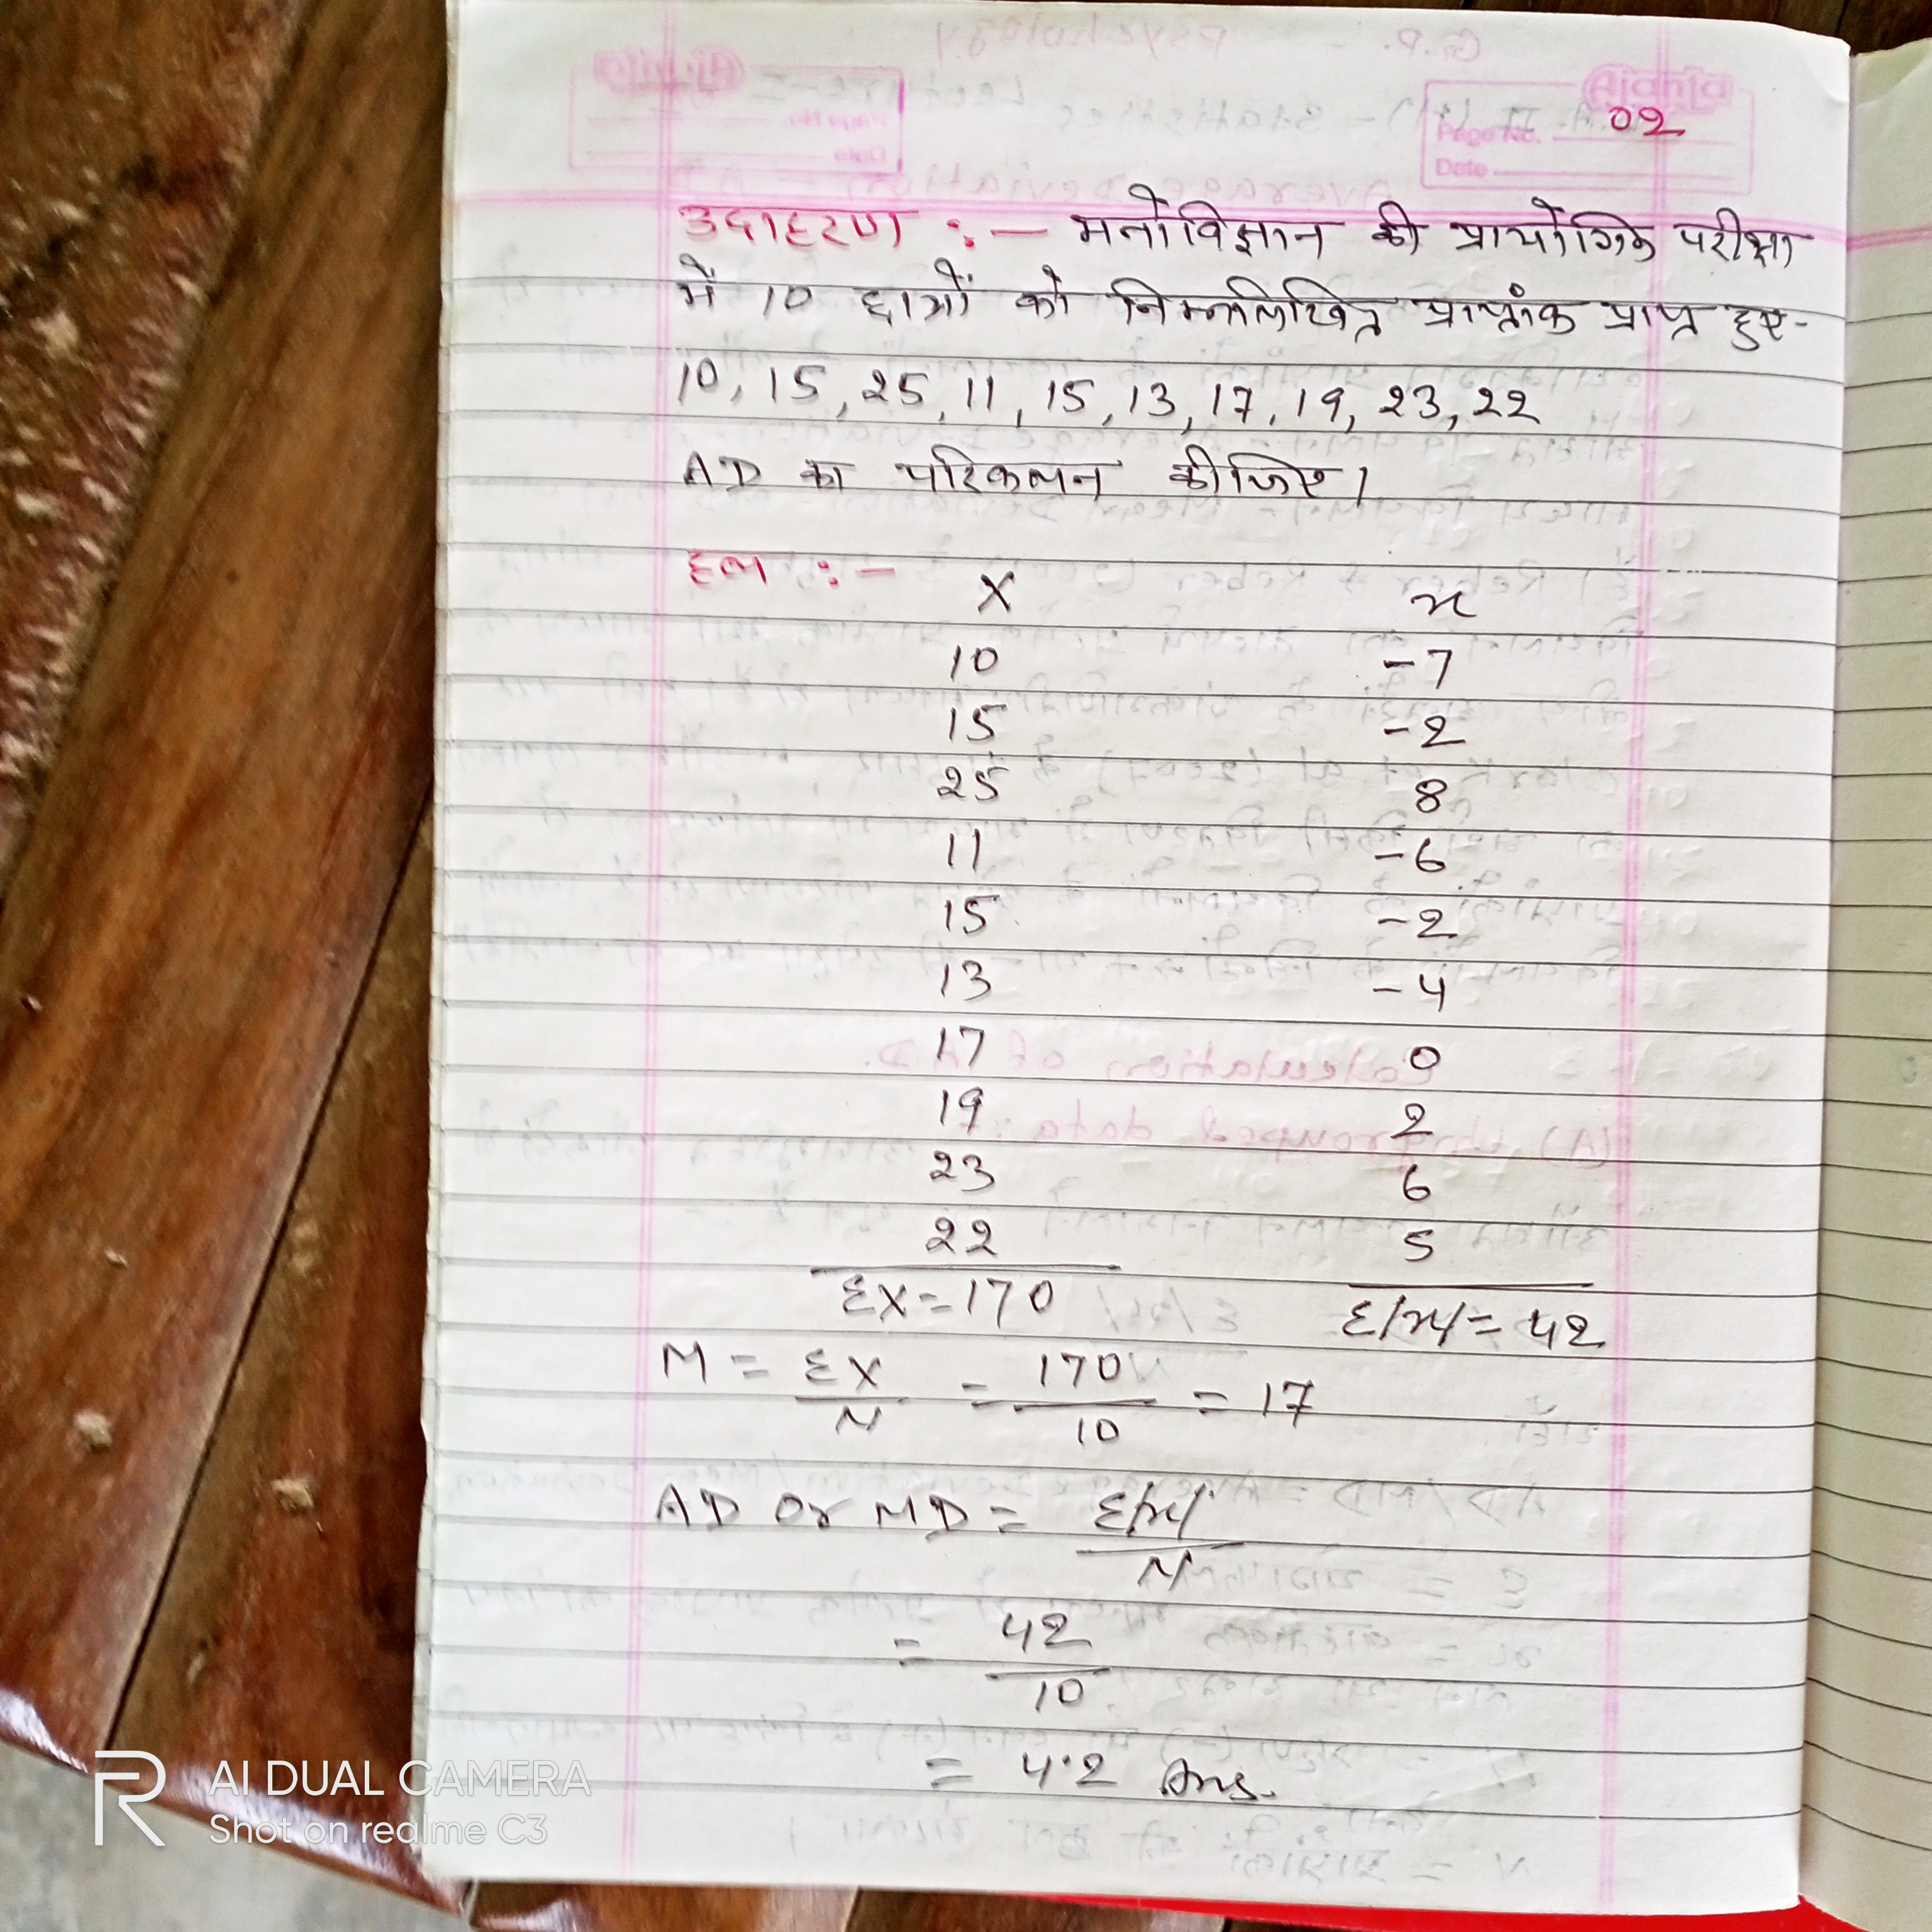 Ajanta
Page No. 02
Date
उदाहरण :- मनोविज्ञान की प्रायोगिक परीक्षा
में 10 छात्रों को निम्नलिखित प्राप्तांक प्राप्त हुए-
10, 15, 25, 11, 15, 13, 17, 19, 23, 22
AD का परिकलन कीजिए।
हल :-
X x
10 -7
15 -2
25 8
11 -6
15 -2
13 -4
17 0
19 2
23 6
22 5
ΣX=170 Σ/x/=42
M = ΣX/N = 170/10 = 17
AD or MD = Σ/x//N
= 42/10
= 4.2 Ans.
R AI DUAL CAMERA
Shot on realme C3